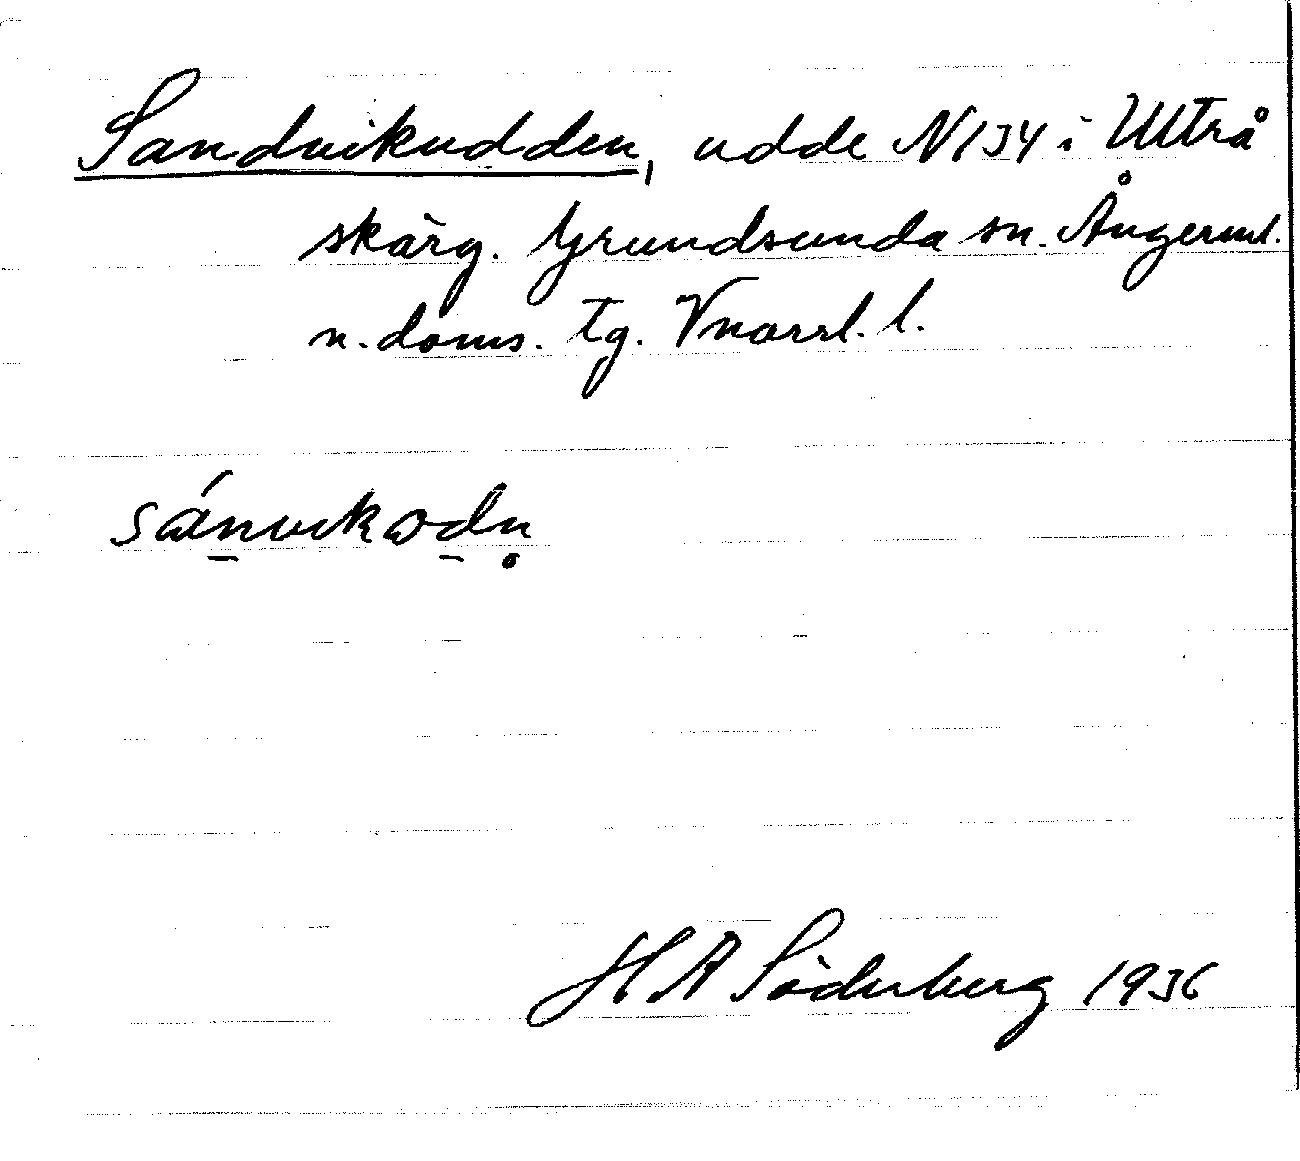 Sandvikudden, udde N134 i Ulttrå
skärg. Grundsunda sn. Ångerml.
n. doms. tg. Vnorrl. l.
sánvikωdn̥
H A Söderberg 1936